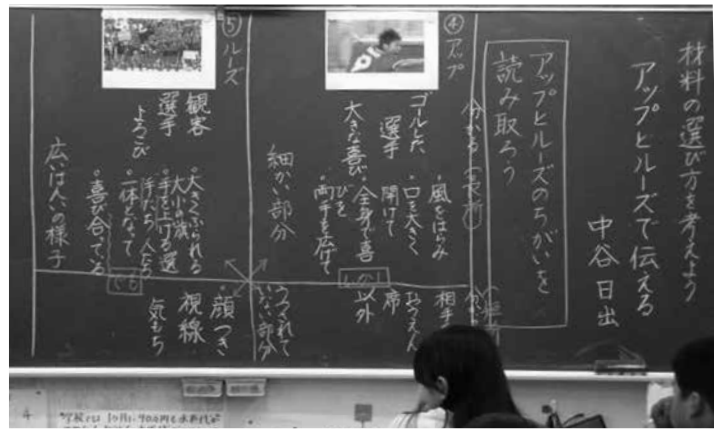 材料の選び方を考えよう
アップとルーズで伝える
中谷日出
アップとルーズのちがいを
読み取ろう
④アップ
分かる(長所)
ゴールした
選手
大きな喜び
・風をはらみ
・口を大きく
開けて
・全身で喜
びを
・両手を広げて
細かい部分
相手
おうえん
席
以外
うつされて
いない部分
⑤ルーズ
観客
選手
よろこび
・大きくふられる
大小の旗
・手を上げる選
手たち、人たち
・一体となって
喜び合っている
広いはんいの様子
・顔つき
視線
気もち
でも